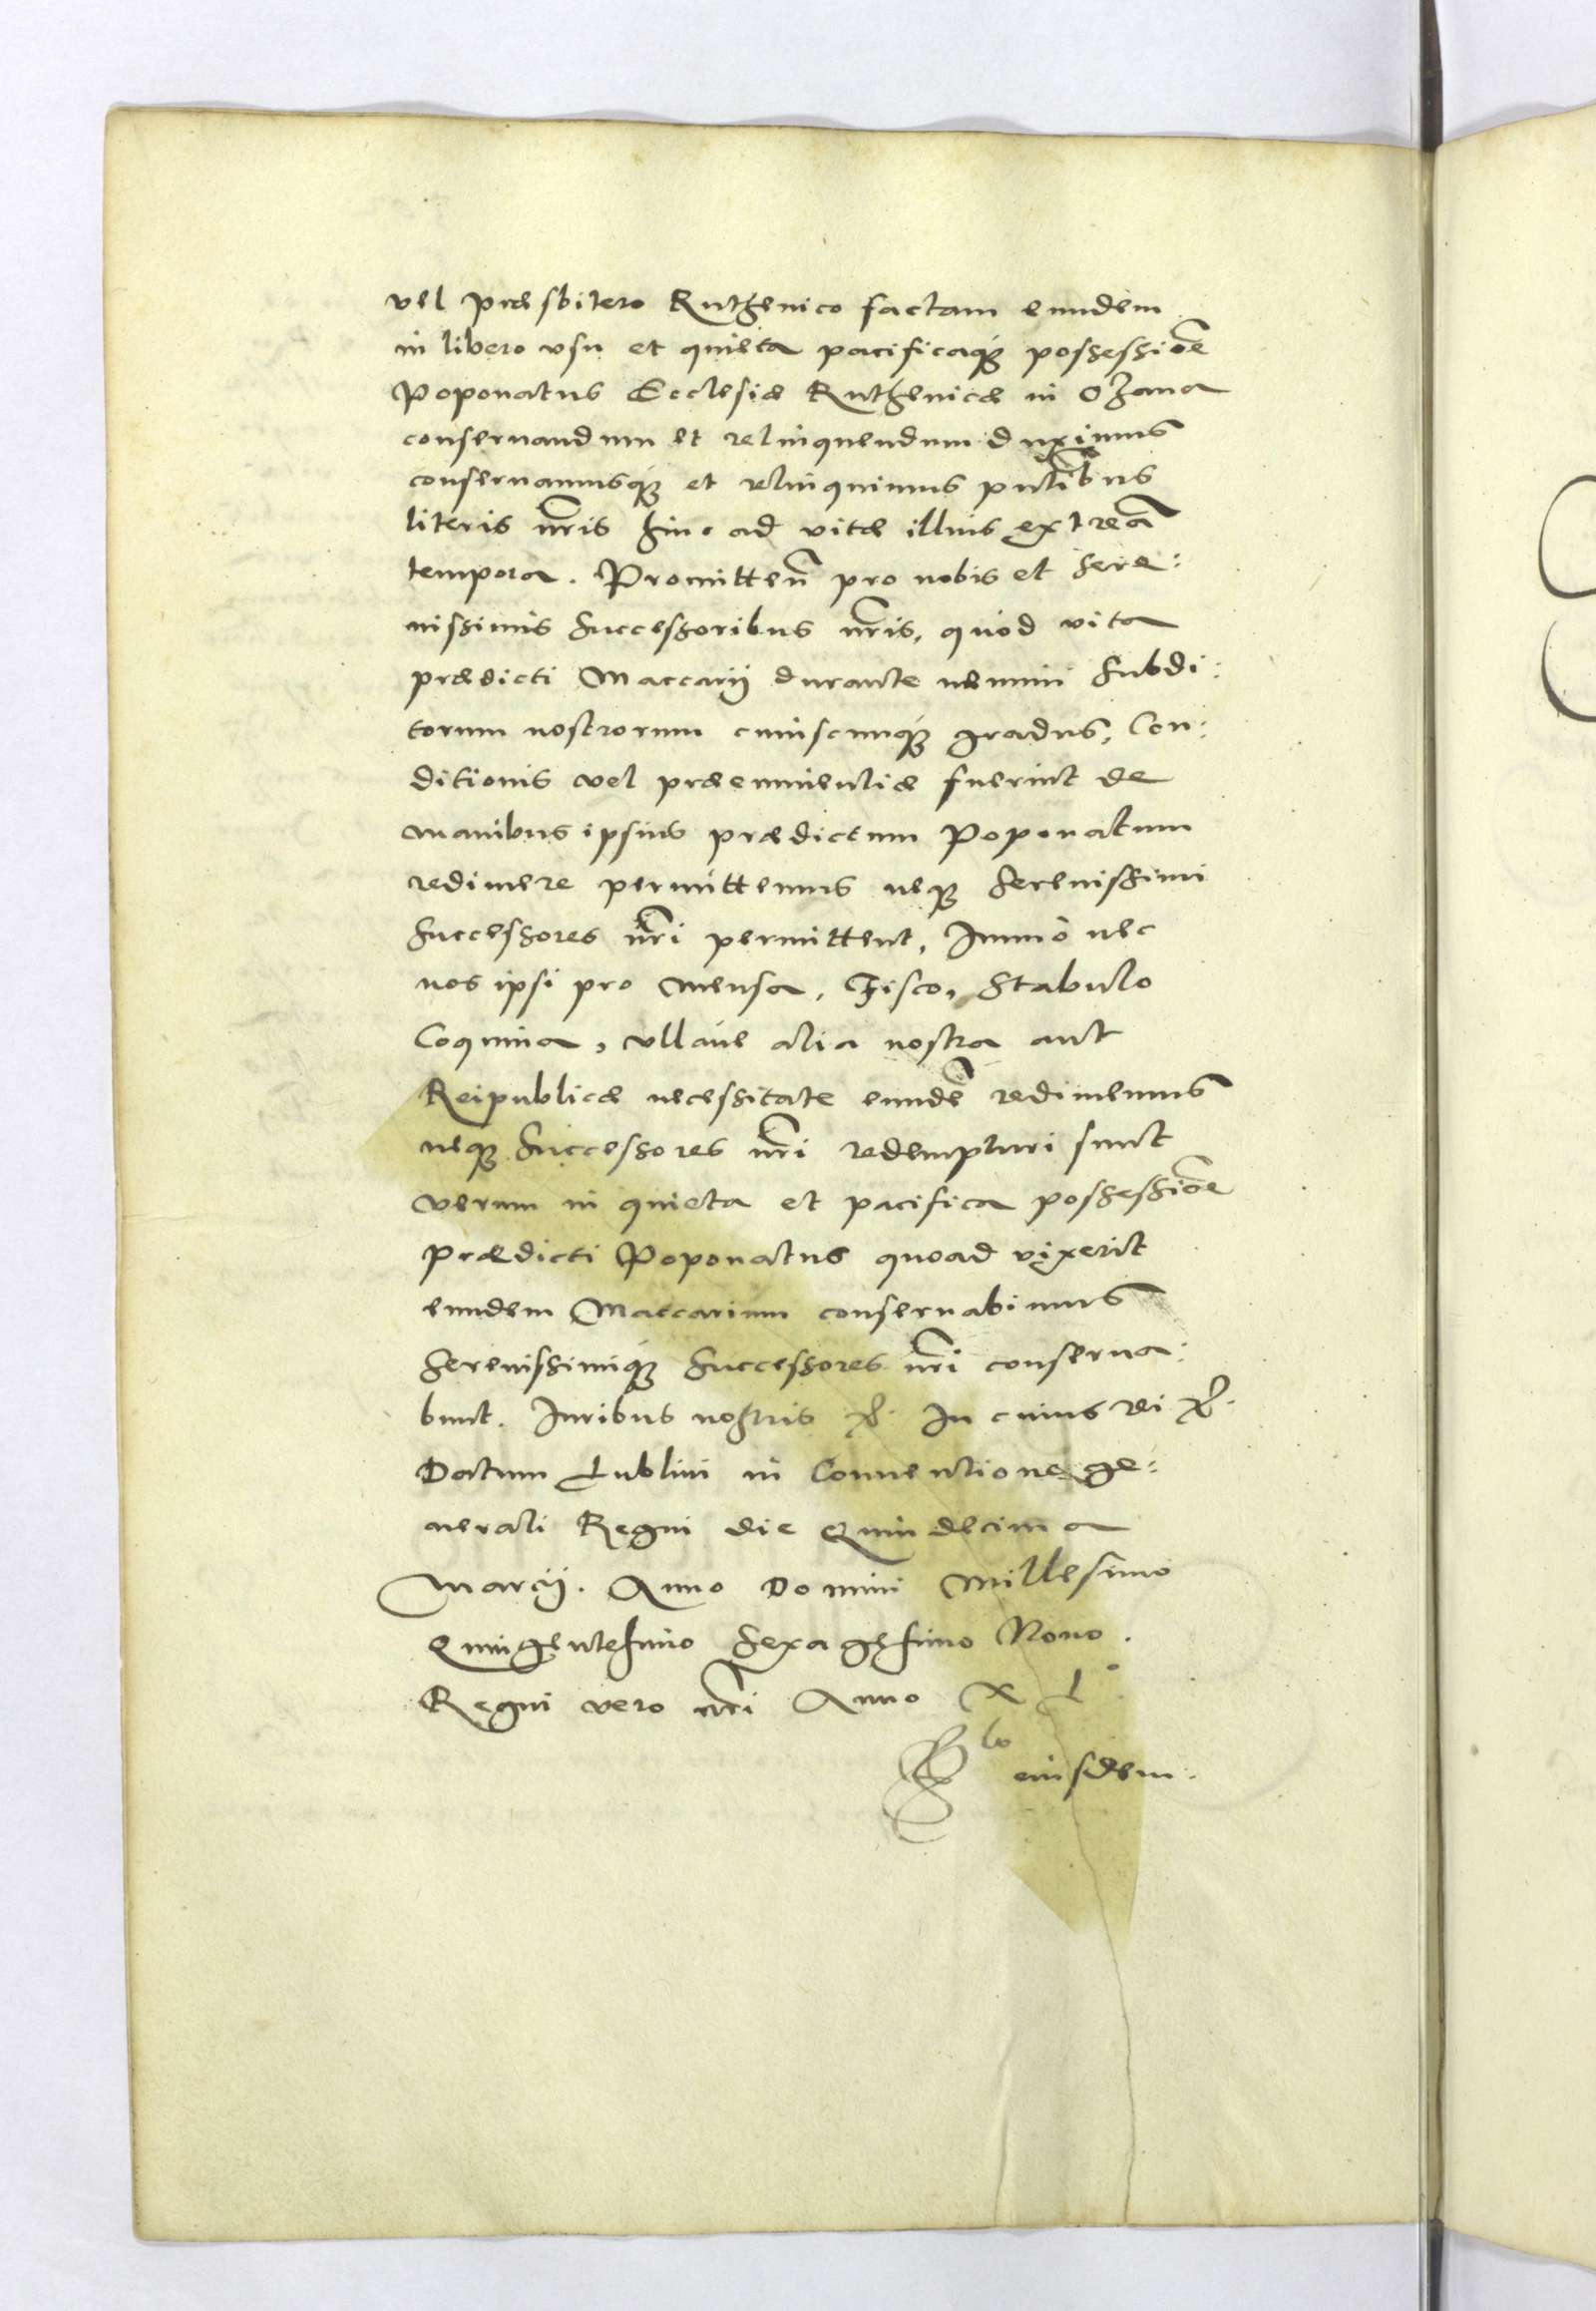 vel præsbitero Ruthenico factam eundem
in libero vsu et quieta pacificaqꜗ possessiōe
Poponatus Ecclesiæ Ruthenicæ in Ożana
conseruandum et relinquendum duximus
conseruamusqꜗ et relinquimus pn̄tibus
literis nr̄is hinc ad vitæ illius extreā
tempora. Promitten̄ pro nobis et Sere:
nissimis Successoribus nr̄is, quòd vita
prædicti Maccarij durante nemini Subdi:
torum nostrorum cuiuscunqꜗ gradus, Con:
ditionis vel præeminentiæ fuerint de
manibus ipsius prædictum Poponatum
redimere permittemus neqꜗ Serenissimi
Successores nr̄i permittent, Immò nec
nos ipsi pro Mensa, Fisco, Stabulo
Coquina, vllaúe alia nostra aut
Reipublicæ necessitate eundē redimemus
neqꜗ Successores nr̄i redempturi sunt
verum in quieta et pacifica possessiōe
prædicti Poponatus quoad vixerit
eundem Maccarium conseruabimus
Serenissimiqꜗ Successores nr̄i conserua:
bunt. Iuribus nostris &. In cuius rei &.
Datum Lublini in Conuentione ge:
nerali Regni die Quindecima
Marcij. Anno Domini Millesimo
Quingentesimo Sexagesimo Nono.
Regni vero nr̄i Anno XL°.
eiusdem.